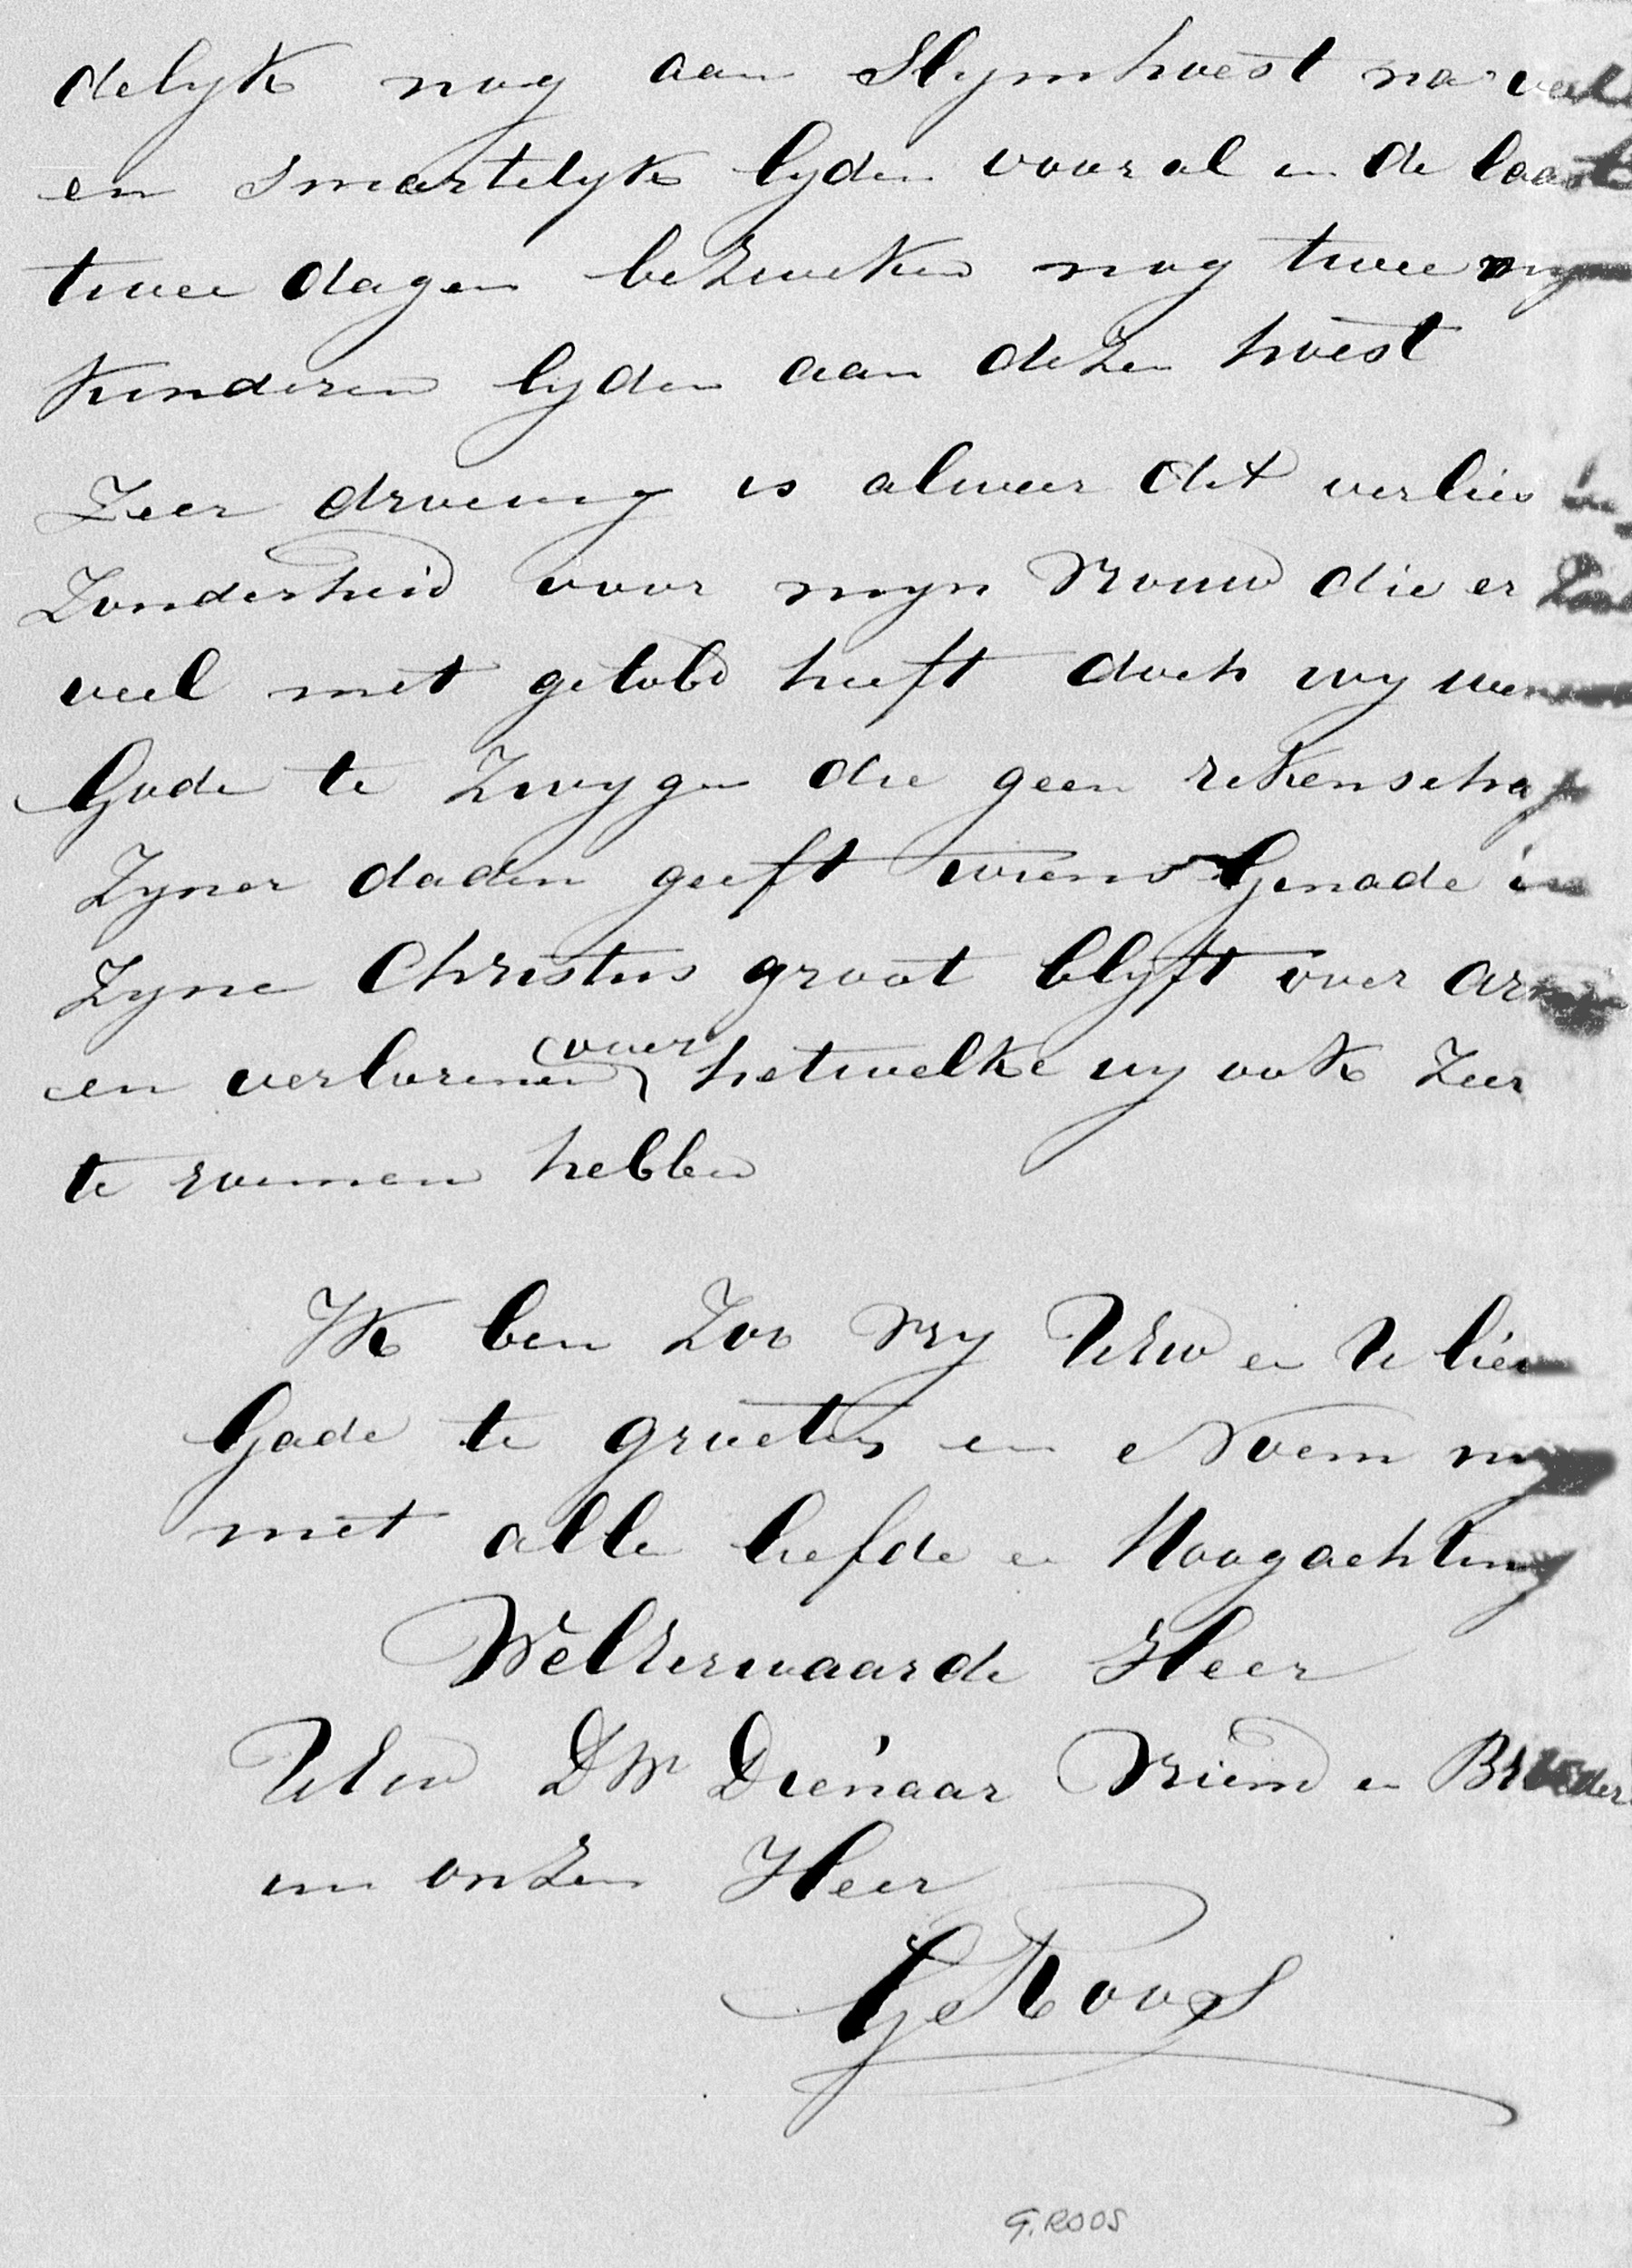 delyk nog aan Slymhoest na veel
en smartelyk lyden vooral in de laatste
twee dagen bezweken nog twee myner
kinderen lyden aan dezen hoest
Zeer droevig is alweer dit verlies by
Zonderheid voor myn Vrouw die er Zoo
veel met getobd heeft doch wy wenschen
Gode te Zwygen die geen rekenschap
Zyner daden geeft wiens Genade in
Zyne Christus groot blyft over arme
en verlorenen (over) hetwelke wy ook Zeer
te roemen hebben
Ik ben Zoo Vry UEw en U lieve
Gade te groeten en Noem my
met alle liefde en Hoogachting
WelEerwaarde Heer
UEw DW Dienaar Vriend en Broeder
in onzen Heer
G Roos
G. ROOS